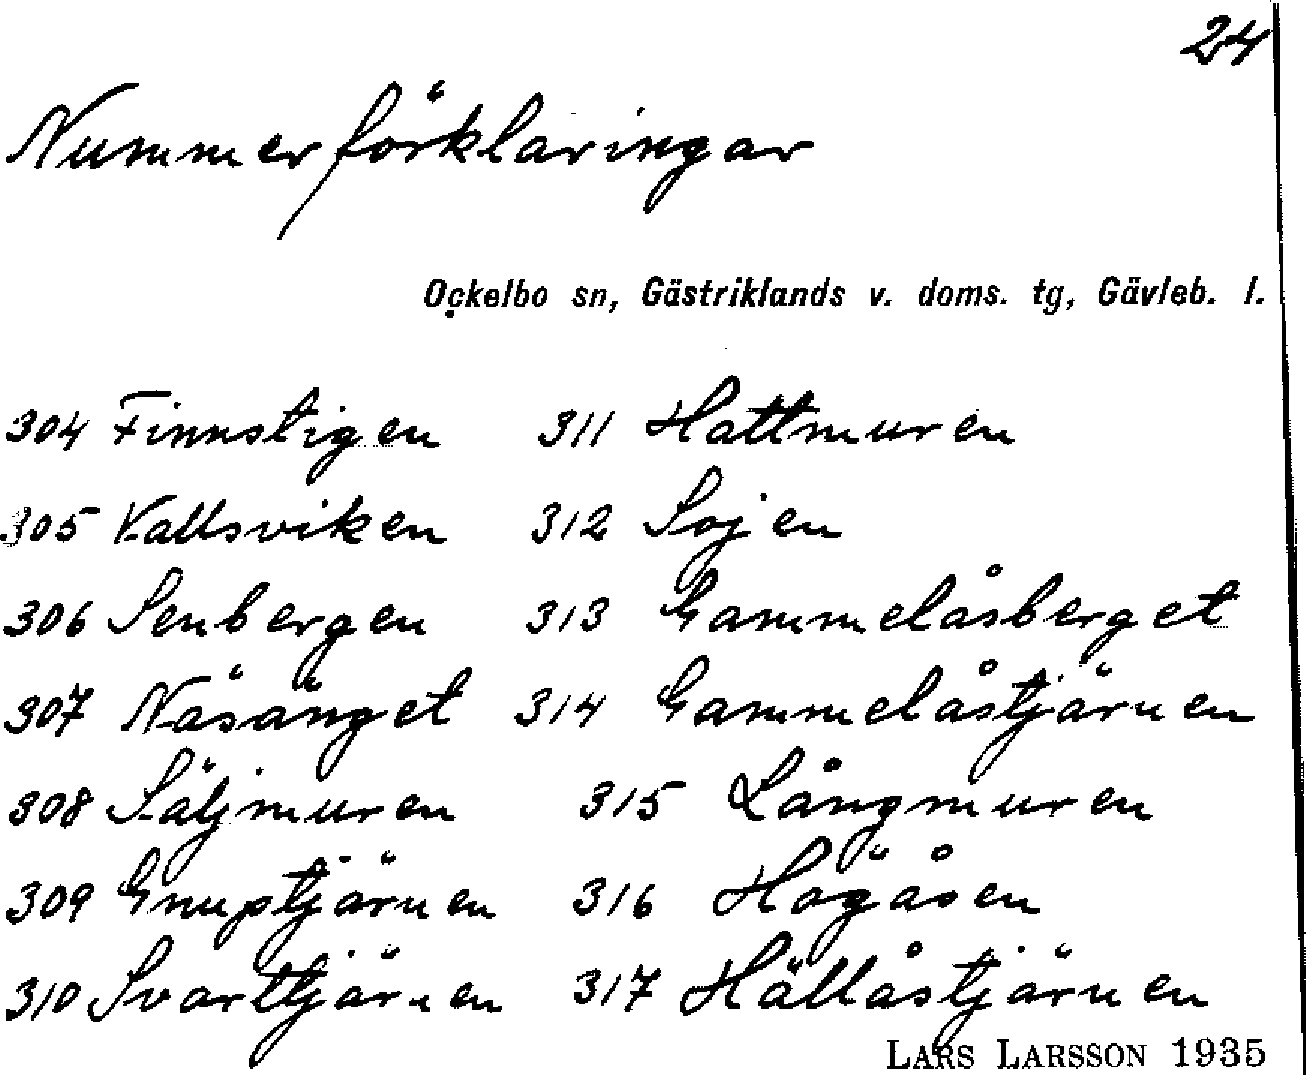 24
Nummerförklaringar
Ockelbo sn, Gästriklands v. doms. tg, Gävleb. l.
304 Finnstigen 311 Hattmuren
305 Vallsviken 312 Sojen
306 Senbergen 313 Gammelåsberget
307 Näsänget 314 Gammelåstjärnen
308 Säljmuren 315 Långmuren
309 Gnuptjärnen 316 Högåsen
310 Svarttjärnen 317 Hällåstjärnen
LARS LARSSON 1935